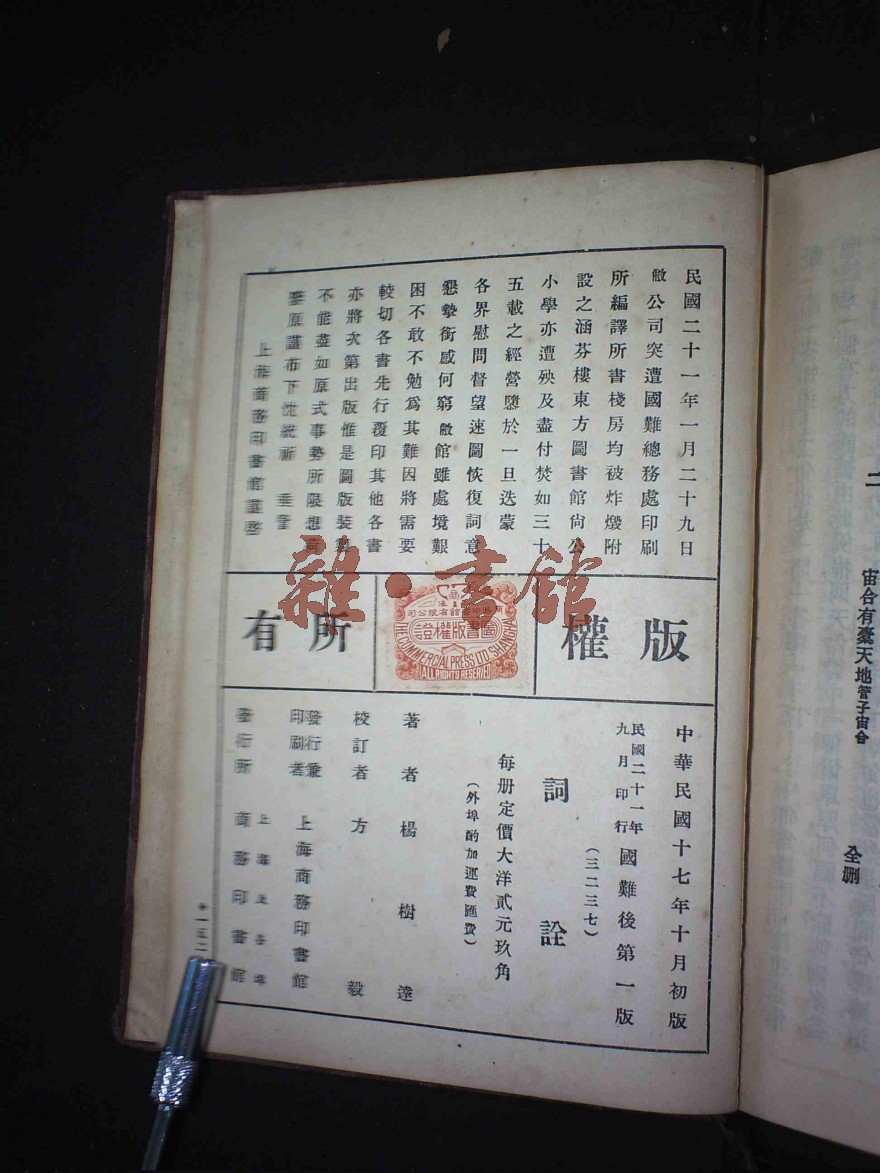 民國二十一年一月二十九日
敝公司突遭國難總務處印刷
所編譯所書棧房均被炸燬附
設之涵芬樓東方圖書館尙公
小學亦遭殃及盡付焚如三十
五載之經營隳於一旦迭蒙
各界慰問督望速圖恢復詞意
懇摯銜感何窮敝館雖處境艱
困不敢不勉爲其難因將需要
較切各書先行覆印其他各書
亦將次第出版惟是圖版裝製
不能盡如原式事勢所限想荷
鑒原謹布下忱統祈 垂詧
上海商務印書館謹啓
版權所有
商務印書館有限公司
圖書版權證
THE COMMERCIAL PRESS LTD SHANGHAI
ALL RIGHTS RESERVED
雜·書館
中華民國十七年十月初版
民國二十一年九月印行 國難後第一版
(三二三七)
詞詮
每册定價大洋貳元玖角
(外埠酌加運費匯費)
著者 楊樹達
校訂者 方毅
發行兼印刷者 上海商務印書館
發行所 上海及各埠 商務印書館
宙合有橐天地管子宙合
全删